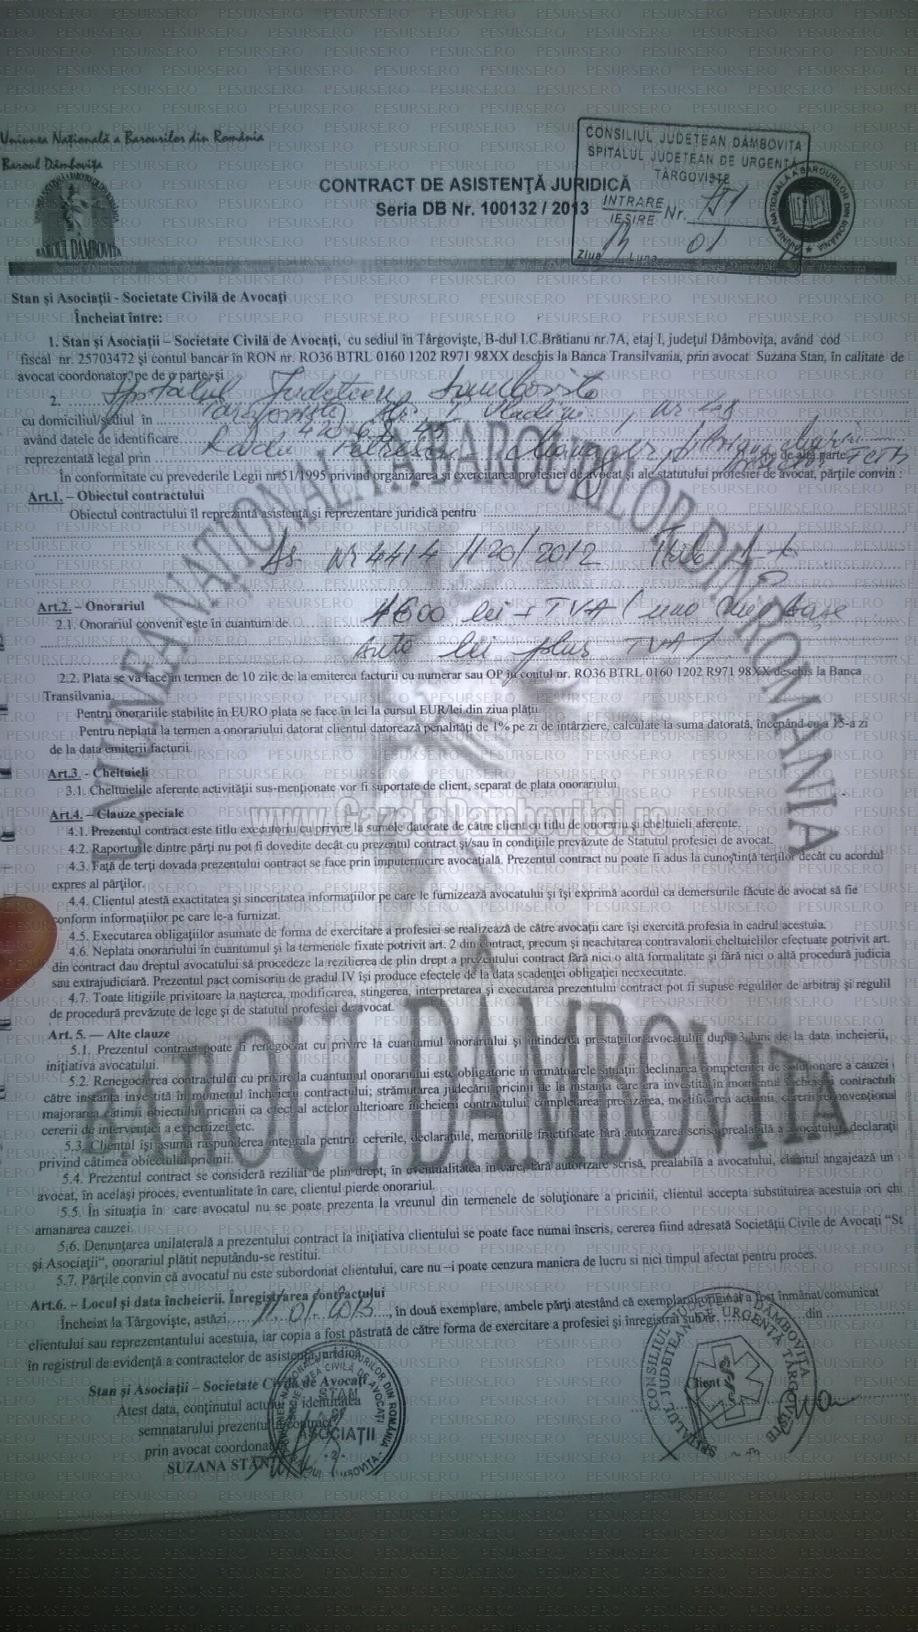 Uniunea Națională a Barourilor din România
Baroul Dâmbovița
BAROUL DAMBOVITA
CONTRACT DE ASISTENȚĂ JURIDICĂ
Seria DB Nr. 100132 / 2013
CONSILIUL JUDEȚEAN DÂMBOVIȚA
SPITALUL JUDEȚEAN DE URGENȚĂ
TÂRGOVIȘTE
INTRARE
IEȘIRE Nr.
Ziua Luna 01
Stan și Asociații - Societate Civilă de Avocați
Încheiat între:
1. Stan și Asociații – Societate Civilă de Avocați, cu sediul în Târgoviște, B-dul I.C.Brătianu nr.7A, etaj I, județul Dâmbovița, având cod
fiscal nr. 25703472 și contul bancar în RON nr. RO36 BTRL 0160 1202 R971 98XX deschis la Banca Transilvania, prin avocat Suzana Stan, în calitate de
avocat coordonator, pe de o parte, și
2. Spitalul Județean Dambovita
cu domiciliul/sediul în Targoviste
având datele de identificare
reprezentată legal prin Radu Petrescu Manager
În conformitate cu prevederile Legii nr. 51/1995 privind organizarea și exercitarea profesiei de avocat și ale statutului profesiei de avocat, părțile convin :
Art.1. – Obiectul contractului
Obiectul contractului îl reprezintă asistență și reprezentare juridică pentru
Ds. Nr 4414/120/2012
Art.2. – Onorariul
2.1. Onorariul convenit este în cuantum de 1600 lei + TVA ( una mie șase
sute lei plus TVA )
2.2. Plata se va face în termen de 10 zile de la emiterea facturii cu numerar sau OP în contul nr. RO36 BTRL 0160 1202 R971 98XX deschis la Banca
Transilvania.
Pentru onorariile stabilite în EURO plata se face în lei la cursul EUR/lei din ziua plății.
Pentru neplata la termen a onorariului datorat clientul datorează penalități de 1% pe zi de întârziere, calculate la suma datorată, începând cu a 15-a zi
de la data emiterii facturii.
Art.3. - Cheltuieli
3.1. Cheltuielile aferente activității sus-menționate vor fi suportate de client, separat de plata onorariului.
www.GazetaDambovitei.ro
Art.4. – Clauze speciale
4.1. Prezentul contract este titlu executoriu cu privire la sumele datorate de către client cu titlu de onorariu și cheltuieli aferente.
4.2. Raporturile dintre părți nu pot fi dovedite decât cu prezentul contract și/sau în condițiile prevăzute de Statutul profesiei de avocat.
4.3. Față de terți dovada prezentului contract se face prin împuternicire avocațială. Prezentul contract nu poate fi adus la cunoștința terților decât cu acordul
expres al părților.
4.4. Clientul atestă exactitatea și sinceritatea informațiilor pe care le furnizează avocatului și își exprimă acordul ca demersurile făcute de avocat să fie
conform informațiilor pe care le-a furnizat.
4.5. Executarea obligațiilor asumate de forma de exercitare a profesiei se realizează de către avocații care își exercită profesia în cadrul acestuia.
4.6. Neplata onorariului în cuantumul și la termenele fixate potrivit art. 2 din contract, precum și neachitarea contravalorii cheltuielilor efectuate potrivit art.
din contract dau dreptul avocatului să procedeze la rezilierea de plin drept a prezentului contract fără nici o altă formalitate și fără nici o altă procedură judicia
sau extrajudiciară. Prezentul pact comisoriu de gradul IV își produce efectele de la data scadenței obligației neexecutate.
4.7. Toate litigiile privitoare la nașterea, modificarea, stingerea, interpretarea și executarea prezentului contract pot fi supuse regulilor de arbitraj și regulil
de procedură prevăzute de lege și de statutul profesiei de avocat.
Art. 5. — Alte clauze
5.1. Prezentul contract poate fi renegociat cu privire la cuantumul onorariului și întinderea prestațiilor avocatului după luni de la data încheierii,
inițiativa avocatului.
5.2. Renegocierea contractului cu privire la cuantumul onorariului este obligatorie în următoarele situații: declinarea competenței de soluționare a cauzei
către instanța investită în momentul încheierii contractului; strămutarea judecării pricinii de la instanța care era investită în momentul încheierii contractulu
majorarea câtimii obiectului pricinii ca efect al actelor ulterioare încheierii contractului, completarea, precizarea, modificarea acțiunii, cererii reconvențional
cererii de intervenție a expertizei, etc.
5.3. Clientul își asumă răspunderea integrală pentru: cererile, declarațiile, memoriile întocmite fără autorizarea scrisă prealabilă a avocatului, declarați
privind câtimea obiectului pricinii.
5.4. Prezentul contract se consideră reziliat de plin drept, în eventualitatea în care, fără autorizare scrisă, prealabilă a avocatului, clientul angajează un
avocat, în același proces, eventualitate în care, clientul pierde onorariul.
5.5. În situația în care avocatul nu se poate prezenta la vreunul din termenele de soluționare a pricinii, clientul accepta substituirea acestuia ori chi
amanarea cauzei.
5.6. Denunțarea unilaterală a prezentului contract la inițiativa clientului se poate face numai înscris, cererea fiind adresată Societății Civile de Avocați "St
și Asociații", onorariul plătit neputându-se restitui.
5.7. Părțile convin că avocatul nu este subordonat clientului, care nu –i poate cenzura maniera de lucru si nici timpul afectat pentru proces.
Art.6. – Locul și data încheierii. Înregistrarea contractului
Încheiat la Târgoviște, astăzi 11.01.2013, în două exemplare, ambele părți atestând că exemplarul original a fost înmânat/comunicat
clientului sau reprezentantului acestuia, iar copia a fost păstrată de către forma de exercitare a profesiei și înregistrat sub nr. din
în registrul de evidență a contractelor de asistență juridică.
Stan și Asociații – Societate Civilă de Avocați
Atest data, conținutul actului și identitatea
semnatarului prezentului contract
prin avocat coordonator
SUZANA STAN
Client
STAN
ASOCIAȚII
CONSILIUL JUDEȚEAN DÂMBOVIȚA
SPITALUL JUDEȚEAN DE URGENȚĂ TÂRGOVIȘTE
UNIUNEA NATIONALĂ A BAROURILOR DIN ROMÂNIA
BAROUL DÂMBOVIȚA
PESURSE.RO